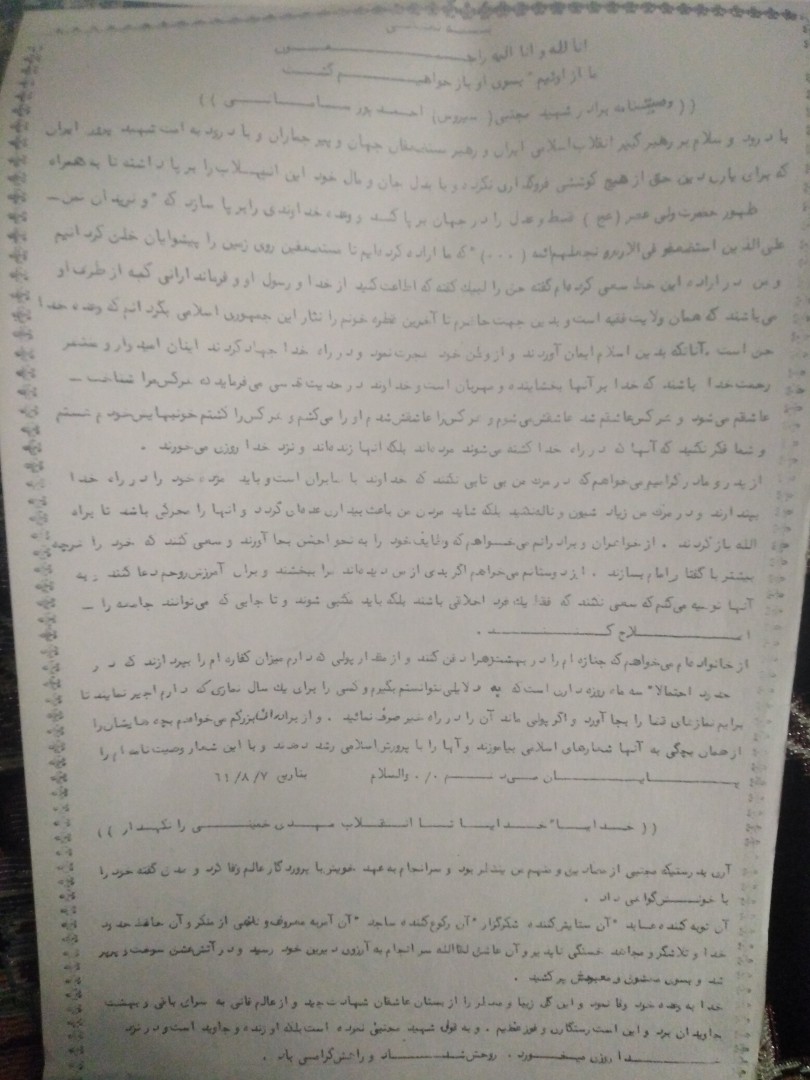 بسمه تعالی
انا لله و انا الیه راجعون
ما از اوئیم "بسوی او باز خواهیم گشت
(( وصیتنامه برادر شهید مجتبی( سیروس) احمد پور سامانی ))
با درود و سلام بر رهبر کبیر انقلاب اسلامی ایران و رهبر مستضعفان جهان و پیر جماران و با درود به امت شهید پرور ایران
که برای یاری دین حق از هیچ کوششی فروگذاری نکرده و با بذل جان و مال خود این انقلاب را بر پا داشته تا به همراه
ظهور حضرت ولی عصر (عج ) قسط و عدل را در جهان بر پا کند و وعده خداوندی را بر پا سازد که " و نرید ان نمن
علی الذین استضعفو فی الارض و نجعلهم ائمه (۰۰۰) "که ما اراده کرده ایم تا مستضعفین روی زمین را پیشوایان خلق گردانیم
و من در اراده این خط سعی کرده ام گفته حق را لبیک گفته که اطاعت کنید از خدا و رسول او و فرماندارانی که از طرف او
می باشند که همان ولایت فقیه است و بدین جهت حاضرم تا آخرین قطره خونم را نثار این جمهوری اسلامی بگردانم که وعده خدا
حق است .آنانکه بدین اسلام ایمان آوردند و از وطن خود هجرت نمود و در راه خدا جهاد کردند اینان امیدوار و منتظر
رحمت خدا باشند که خدا بر آنها بخشاینده و مهربان است و خداوند در حدیث قدسی می فرماید که هرکس مرا شناخت
عاشقم می شود و هر کس عاشقم شد عاشقش می شوم و هر کس را عاشقش شدم او را می کشم و هر کس را کشتم خونبهایش خودم هستم
و شما فکر نکنید که آنها که در راه خدا کشته می شوند مرده اند بلکه آنها زنده اند و نزد خدا روزی می خورند .
از پدر و مادر گرامیم می خواهم که در مرگ من بی تابی نکنند که خداوند با صابران است و باید مژده خود را در راه خدا
بپندارند و در مرگ من زیاد شیون و ناله نکنید بلکه شاید مردن من باعث بیداری عده ای گردد و آنها را محرکی باشد تا براه
الله باز گردند . از خواهران و برادرانم می خواهم که وظایف خود را به نحو احسن بجا آورند و سعی کنند که خود را هرچه
بیشتر با گفتار امام بسازند . از دوستانم می خواهم اگر بدی از من دیده اند مرا ببخشند و برای آمرزش روحم دعا کنند . به
آنها توصیه می کنم که سعی نکنند که فقط یک فرد اخلاقی باشند بلکه باید مکتبی شوند و تا جایی که می توانند جامعه را
اصلاح کنند .
از خانواده ام می خواهم که جنازه ام را در بهشت زهرا دفن کنند و از مقدار پولی که دارم میزان کفاره ام را بپردازند که در
حدود احتمالا" سه ماه روزه داری است که به دلایلی نتوانستم بگیرم و کسی را برای یک سال نمازی که دارم اجیر نمایند تا
برایم نمازهای قضا را بجا آورد و اگر پولی ماند آن را در راه خیر صرف نمائید . و از برادران بزرگم می خواهم بچه هایشان را
از همان بچگی به آنها شعارهای اسلامی بیاموزند و آنها را با پرورش اسلامی رشد دهند و با این شعار وصیت نامه ام را
پایان میدهم ۰/۰ والسلام بتاریخ ۶۱/۸/۷
(( خدایا" خدایا تا انقلاب مهدی خمینی را نگهدار ))
آری بدرستیکه مجتبی از صادقین و متهم من ینتظر بود و سرانجام به عهد خویش با پروردگار عالم وفا کرد و صدق گفته خود را
با خونش گواهی داد .
آن توبه کننده عابد "آن ستایش کننده شکرگزار "آن رکوع کننده ساجد "آن آمر به معروف و ناهی از منکر و آن حافظ حدود
خدا و تلاشگر و مجاهد خستگی ناپذیر و آن عاشق لقاالله سرانجام به آرزوی دیرین خود رسید و در آتش عشق سوخت و پرپر
شد و بسوی معشوق و معبودش پر کشید .
خدا به وعده خود وفا نمود و این گل زیبا و معطر را از بستان عاشقان شهادت چید و از عالم فانی به سرای باقی و بهشت
جاویدان برد و این است رستگاری و فوز عظیم . و به قول شهید مجتبی نمرده است بلکه او زنده و جاوید است و در نزد
خدا روزی میخورد . روحش شاد و راهش گرامی باد .